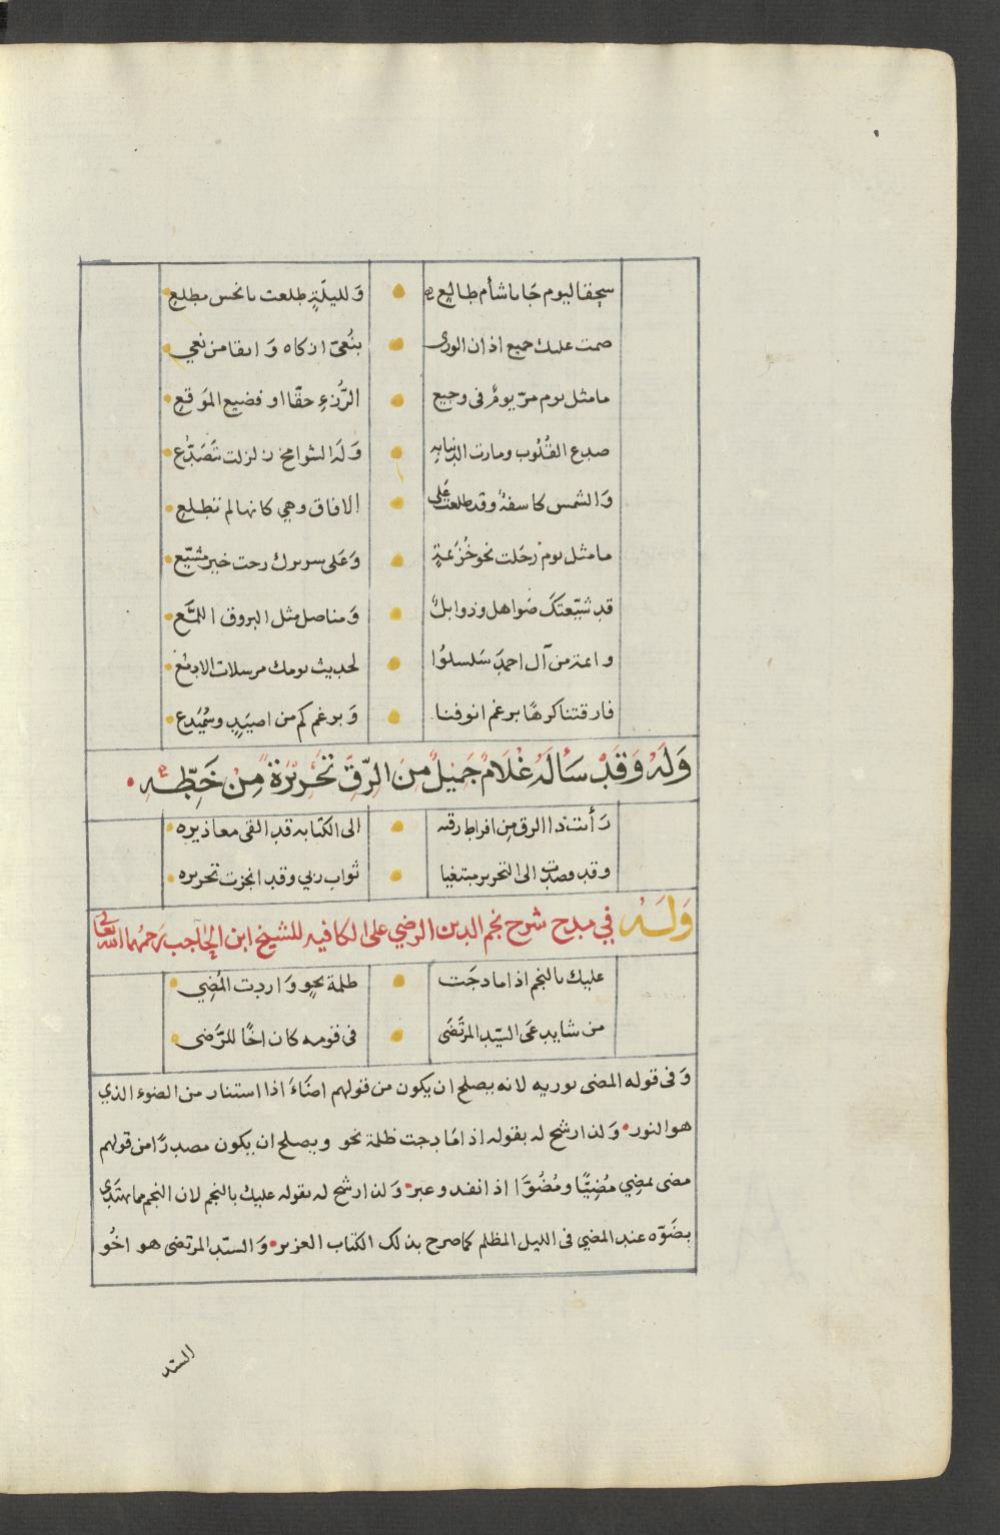 سحقا ليوم جا باشأم طالع • وَلليلَةٍ طلعت بانحس مطلع
صمت عليك جميع اذان الورى • بنُعىّ ازكاه وَ ابقا من نعي
ما مثل يوم مرّ يومٌ في وجيع • الرُّزءِ حقّا او فضيع الموَقع
صدع القُلُوب ومارت الدنيا به • وَلَهَ الشوامخ زلزلت تَصَدُّع
وَالشمس كاسفةٌ وقد طلعت عَلى • الافاق وهي كانها لم تطلع
ما مثل يوم رحَلت نحو خُزَيمةٍ • وَعَلى سريرك رحت خير مشيّع
قد شيّعتكَ صَواهل وذوابلٌ • وَمناصل مثل البروق اللمّع
وائمة من آل احمدَ سَلسلوُا • لحديث يومك مرسلات الادمع
فارقتنا كرهًا برغم انوفنا • وَبرغم كم من اصيَدٍ وسُمَيدع
وَلَهُ وَقَدْ سَألَهُ غلَامٌ جَمِيلٌ مِنَ الرِّقّ تَحْرِيْرَهُ مِنْ خَطّهِ •
رَأيت ذا الرق من افراط رقته • الى الكتابه قد القى معاذيره
وقد قصدت الى التحرير مبتغيا • ثواب ربي وقد انجزت تحريره
وَلَهُ في مدح شرح نجم الدين الرضي على الكافيه للشيخ ابن الحاجب رَحمهُما الله تعالى
عليك بالنجم اذا ما دجَت • ظلمة نحوٍ وَاردت المُضِي
من شابه عَى السيّد المرتَضَى • في قومه كان اخًا للرَّضى
وَفى قوله المضى توريه لانه يصلح ان يكون من قولهم اضَاءَ اذا استنار من الضوء الذي
هو النور • وَلذا رشح له بقوله اذا مَا دجت ظلمة نحو ويصلح ان يكون مصدرًا من قولهم
مضى يمضِي مُضِيًّا ومُضُوَّا اذا نفد وعبر • وَلذا رشح له بقوله عليك بالنجم لان النجم مما يهتَدى
بضَوّه عند المضي فى الليل المظلم كما صرح بذلك الكتاب العزيز • وَالسيّد المرتضى هو اخُو
السيد